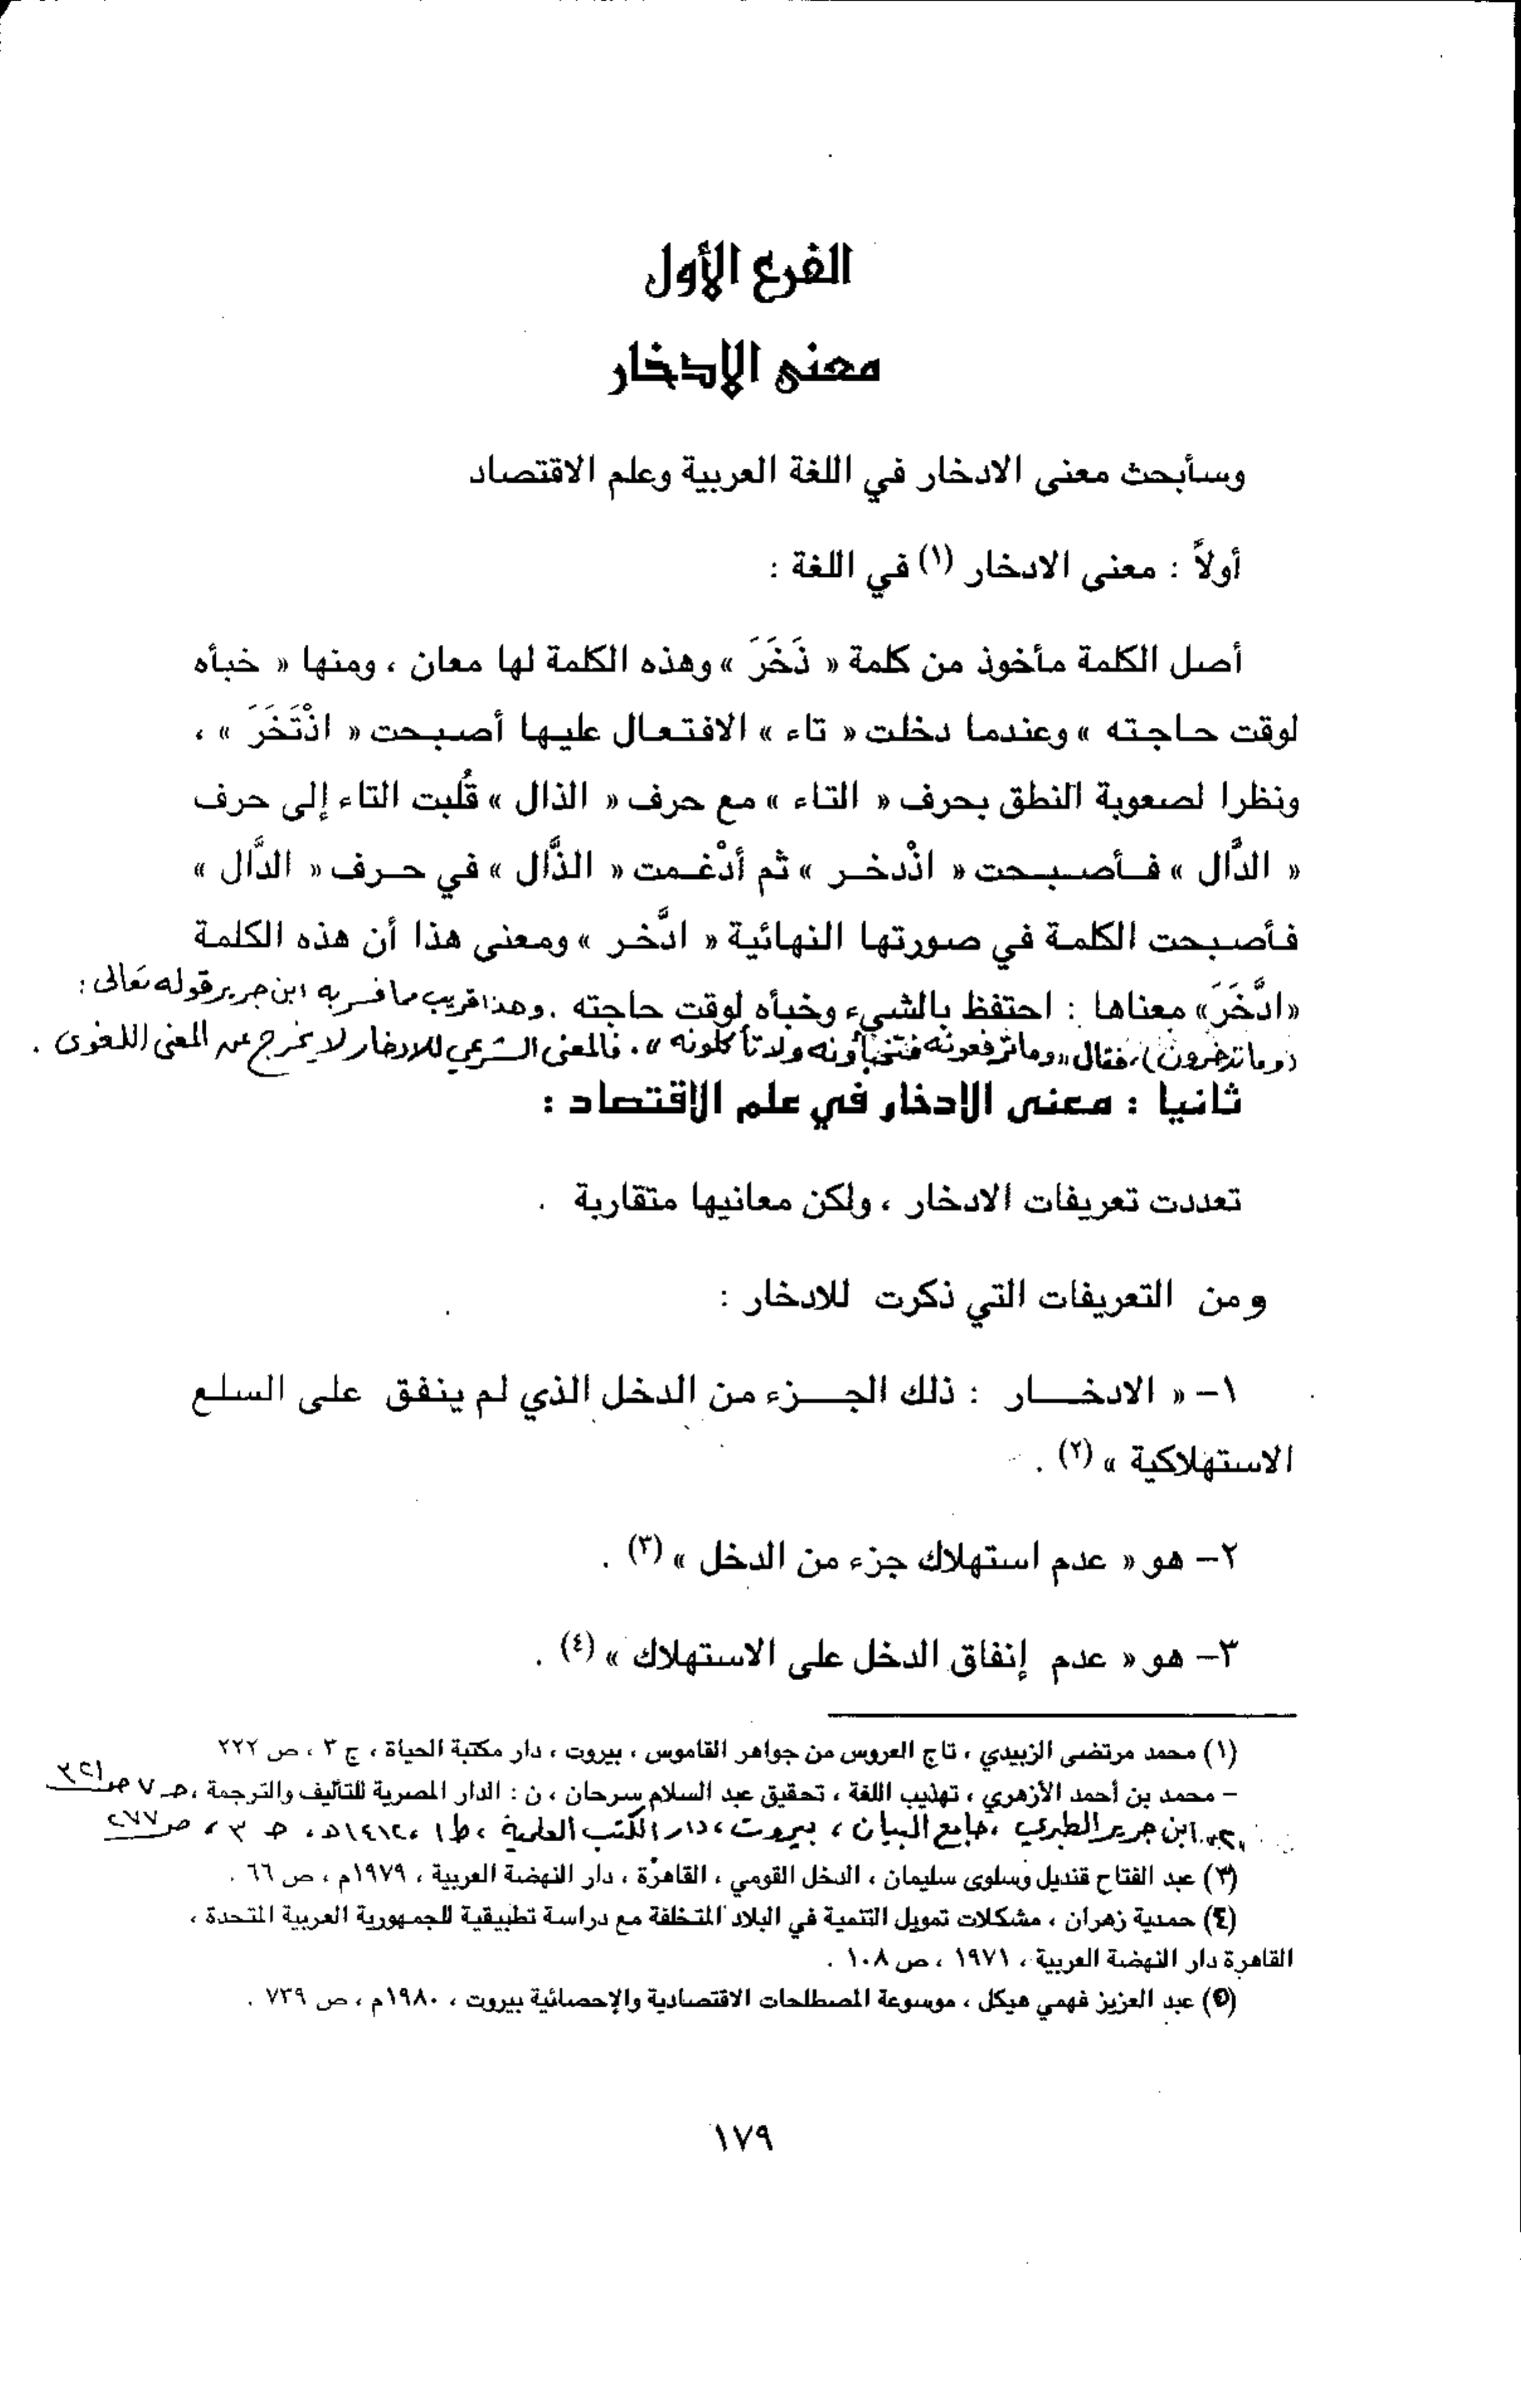 الفرع الأول
معنى الإدخار
وسأبحث معنى الادخار في اللغة العربية وعلم الاقتصاد
أولاً : معنى الادخار (١) في اللغة :
أصل الكلمة مأخوذ من كلمة « ذَخَرَ » وهذه الكلمة لها معان ، ومنها « خبأه
لوقت حاجته » وعندما دخلت « تاء » الافتعال عليها أصبحت « اذْتَخَرَ » ،
ونظرا لصعوبة النطق بحرف « التاء » مع حرف « الذال » قُلبت التاء إلى حرف
« الدَّال » فأصبحت « اذْدخر » ثم أدْغمت « الذَّال » في حرف « الدَّال »
فأصبحت الكلمة في صورتها النهائية « ادَّخر » ومعنى هذا أن هذه الكلمة
«ادَّخَرَ» معناها : احتفظ بالشيء وخبأه لوقت حاجته . وهذا قريب مما فسر به ابن جرير قوله تعالى :
(وما تدخرون) ، فقال « وما ترفعونه فتخبأونه ولا تأكلونه » . فالمعنى الشرعي للادخار لا يخرج عن المعنى اللغوى .
ثانيا : معنى الإدخار في علم الإقتصاد :
تعددت تعريفات الادخار ، ولكن معانيها متقاربة .
ومن التعريفات التي ذكرت للادخار :
١– « الادخار : ذلك الجزء من الدخل الذي لم ينفق على السلع
الاستهلاكية » (٢) .
٢– هو « عدم استهلاك جزء من الدخل » (٣) .
٣– هو « عدم إنفاق الدخل على الاستهلاك » (٤) .
(١) محمد مرتضى الزبيدي ، تاج العروس من جواهر القاموس ، بيروت ، دار مكتبة الحياة ، ج ٣ ، ص ٢٢٢
– محمد بن أحمد الأزهري ، تهذيب اللغة ، تحقيق عبد السلام سرحان ، ن : الدار المصرية للتأليف والترجمة ، جـ ٧ ص ٣٢١
ابن جرير الطبري ، جامع البيان ، بيروت ، دار الكتب العلمية ، ط ١ ، ١٤١٢هـ ، جـ ٣ ، ص ٢٧٧
(٣) عبد الفتاح قنديل وسلوى سليمان ، الدخل القومي ، القاهرة ، دار النهضة العربية ، ١٩٧٩م ، ص ٦٦ .
(٤) حمدية زهران ، مشكلات تمويل التنمية في البلاد المتخلفة مع دراسة تطبيقية للجمهورية العربية المتحدة ،
القاهرة دار النهضة العربية ، ١٩٧١ ، ص ١٠٨ .
(٥) عبد العزيز فهمي هيكل ، موسوعة المصطلحات الاقتصادية والإحصائية بيروت ، ١٩٨٠م ، ص ٧٣٩ .
١٧٩